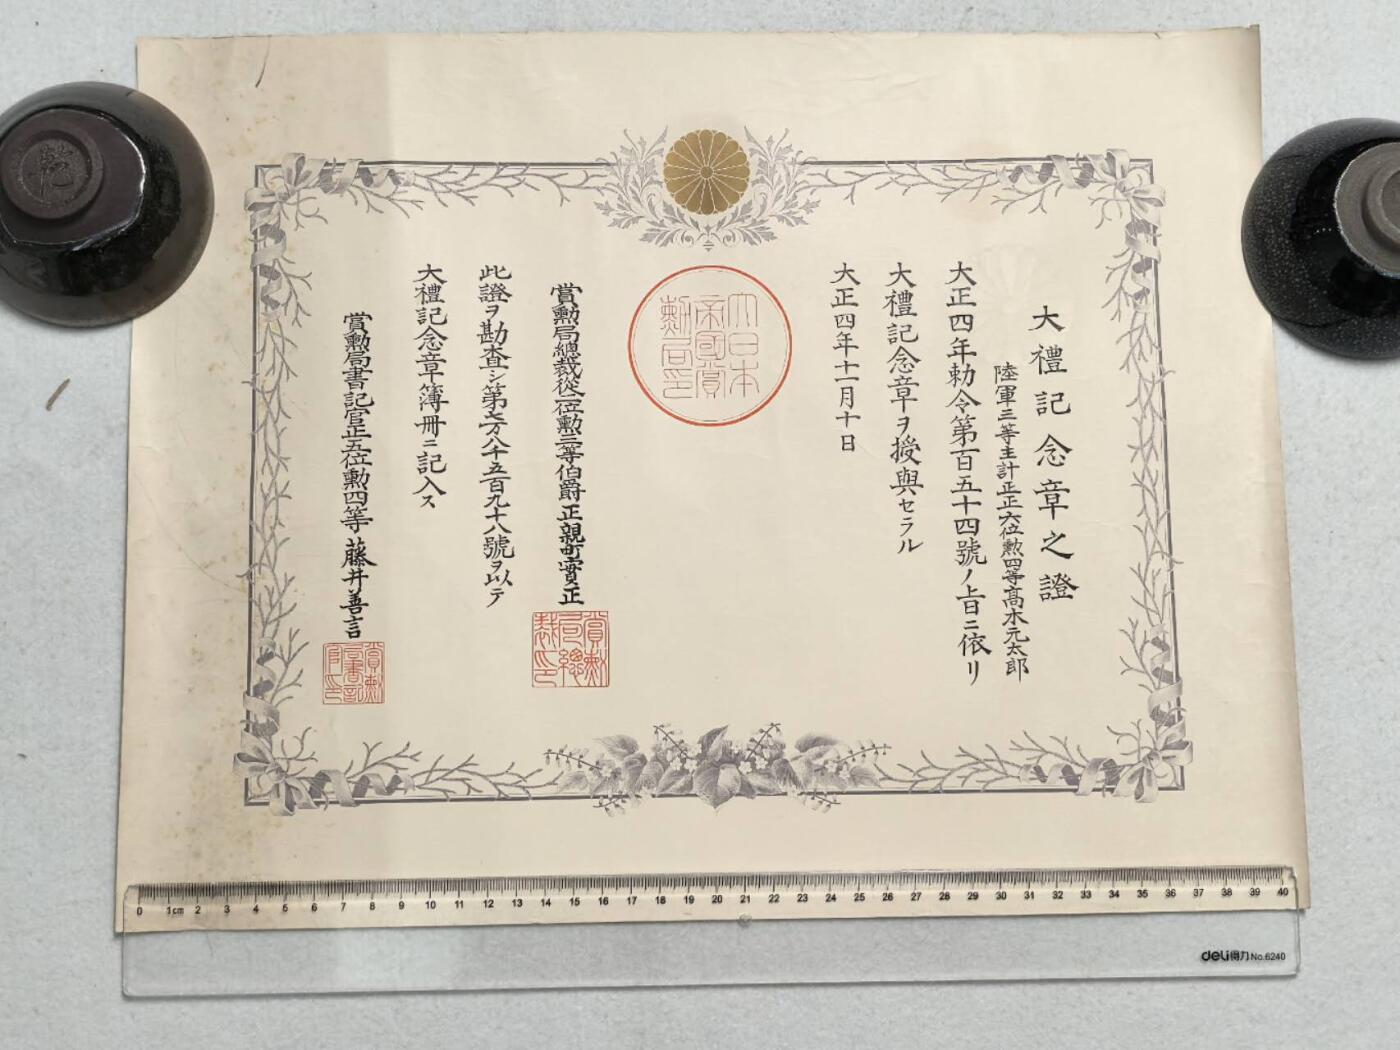 大禮記念章之證
陸軍三等主計正正六位勲四等高木元太郎
大正四年勅令第百五十四號ノ旨ニ依リ
大禮記念章ヲ授與セラル
大正四年十一月十日
大日本
帝國賞
勲局印
賞勲局總裁從二位勲三等伯爵正親町實正
賞勲
局總
裁印
此證ヲ勘査シ第七万八千五百九十八號ヲ以テ
大禮記念章簿冊ニ記入ス
賞勲局書記官正五位勲四等藤井善言
賞勲
局書記
官印
0 1cm 2 3 4 5 6 7 8 9 10 11 12 13 14 15 16 17 18 19 20 21 22 23 24 25 26 27 28 29 30 31 32 33 34 35 36 37 38 39 40
deli得力 No.6240